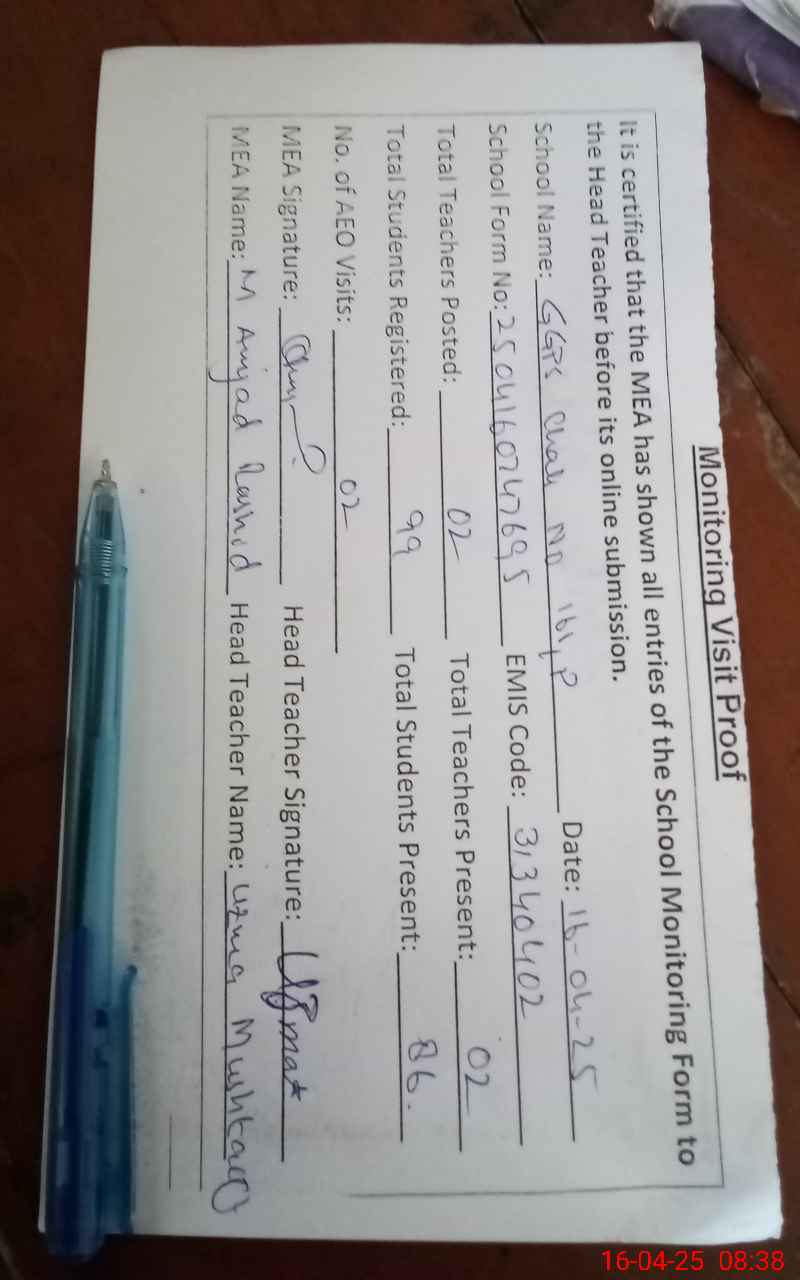 Monitoring Visit Proof
It is certified that the MEA has shown all entries of the School Monitoring Form to
the Head Teacher before its online submission.
School Name: GGPS Chak No 161/P Date: 16-04-25
School Form No: 2504160747695 EMIS Code: 31340402
Total Teachers Posted: 02 Total Teachers Present: 02
Total Students Registered: 99 Total Students Present: 86.
No. of AEO Visits: 02
MEA Signature: Head Teacher Signature:
MEA Name: M Amjad Rashid Head Teacher Name: Uzma Mushtaq
16-04-25 08:38